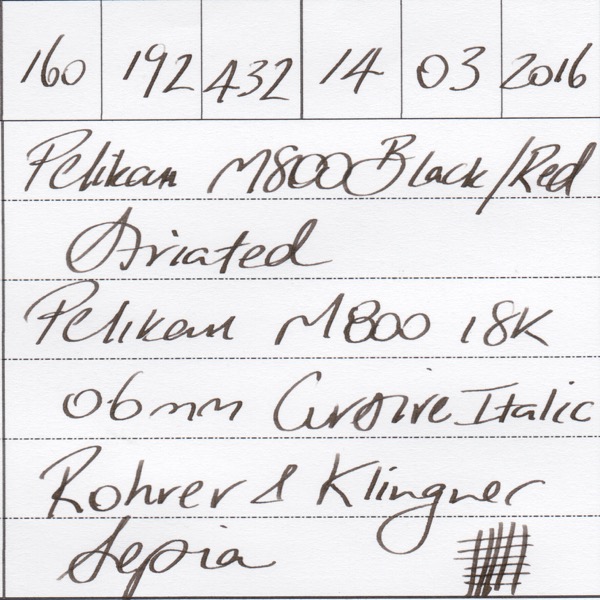 160 192 432 14 03 2016
Pelikan M800 Black/Red
Striated
Pelikan M800 18K
06mm Cursive Italic
Rohrer & Klingner
Sepia